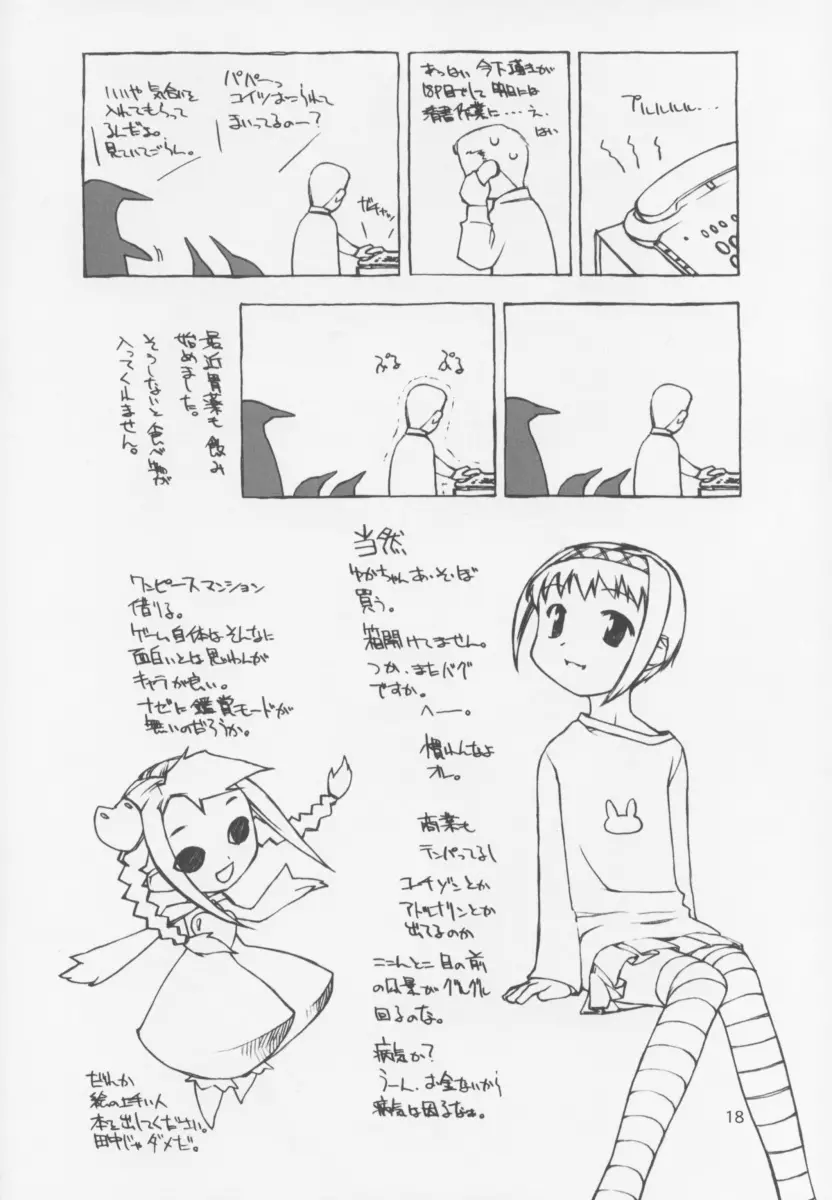 プルルルル...
あっはい 今下描きが
18P目でして 明日には
清書作業に・・・え、
はい
パパーっ
コイツおこられて
まいってるのー?
いいや 気合いを
入れてもらって
るんだよ。
見ていてごらん。
ガチャッ
ぷる
ぷる
最近胃薬も飲み
始めました。
そうしないと食べ物が
入ってくれません。
当然
ゆかちゃんあ・そ・ぼ
買う。
箱開けてません。
つか、またバグ
ですか。
へー。
慣れんなよ
オレ。
商業も
テンパってるし
コーチゾンとか
アドレナリンとか
出てるのか
ここんとこ目の前
の風景がグルグル
回るのな。
病気か?
うーん、お金ないから
病気は困るなぁ。
ワンピースマンション
借りる。
ゲーム自体はそんなに
面白いとは思わんが
キャラが良い。
ナゼに鑑賞モードが
無いのだろうか。
だれか
絵の上手い人
本を出してください。
田中じゃダメだ。
18